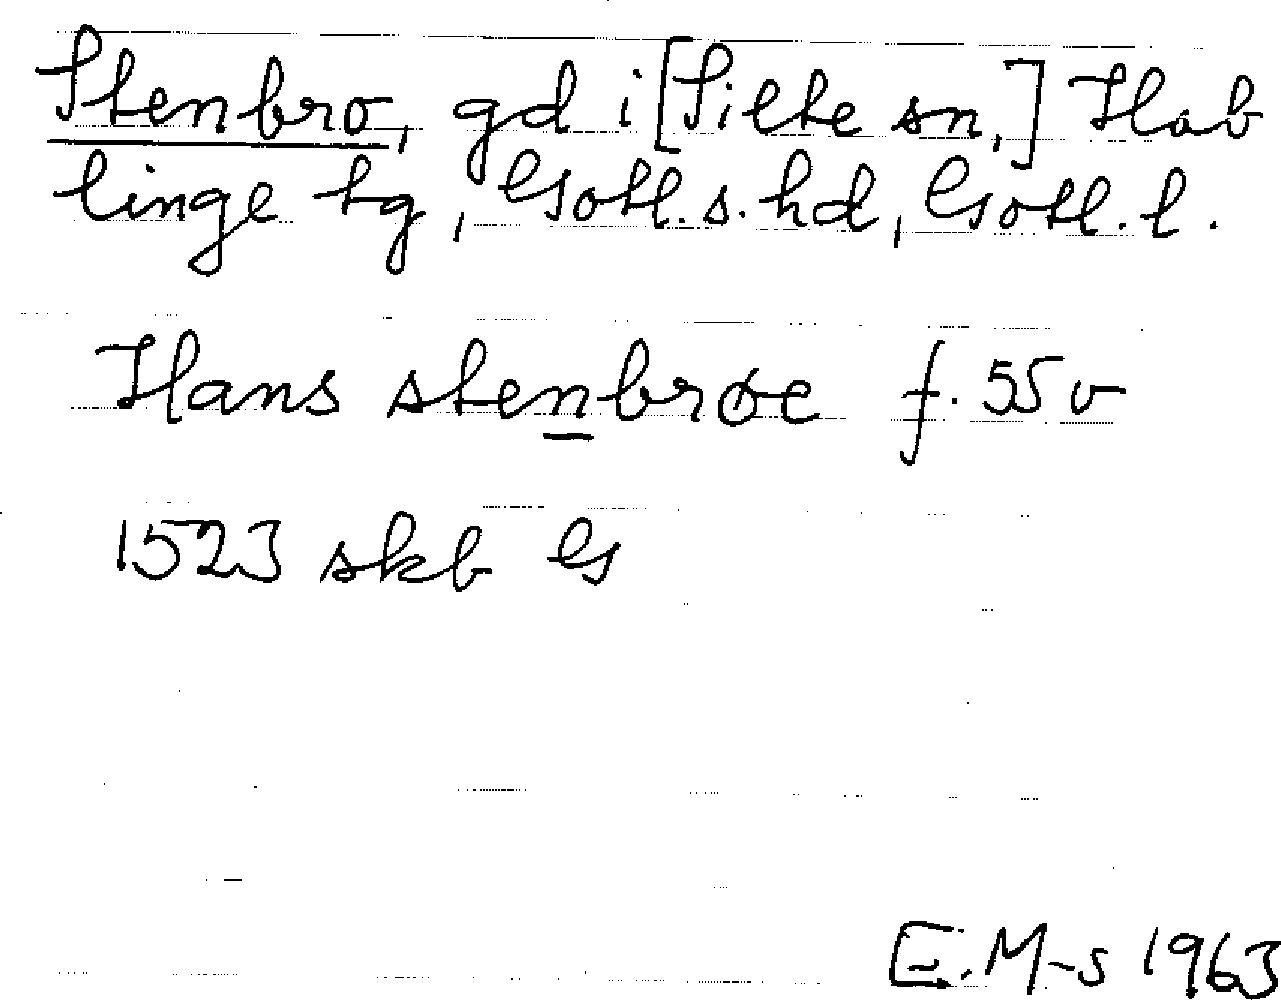 Stenbro, gd i [Silte sn,] Hab
linge tg, Gotl. s. hd, Gotl. l.
Hans stenbrøe f. 55 v
1523 skb G
E. M-s 1963